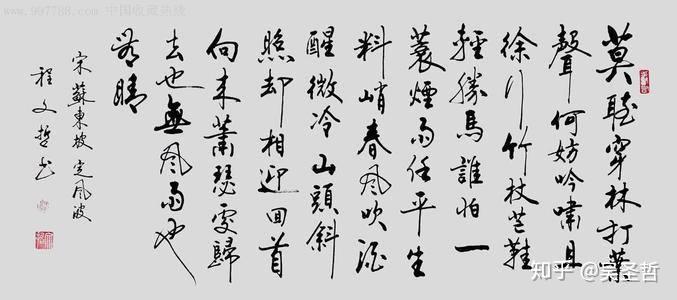 www.997788.com 中国收藏热线
莫聽穿林打葉
聲何妨吟嘯且
徐行竹杖芒鞋
輕勝馬誰怕一
蓑煙雨任平生
料峭春风吹酒
醒微冷山頭斜
照却相迎回首
向来蕭瑟處歸
去也無风雨也
無晴
宋蘇東坡定风波
程文哲书
知乎 @吴圣哲